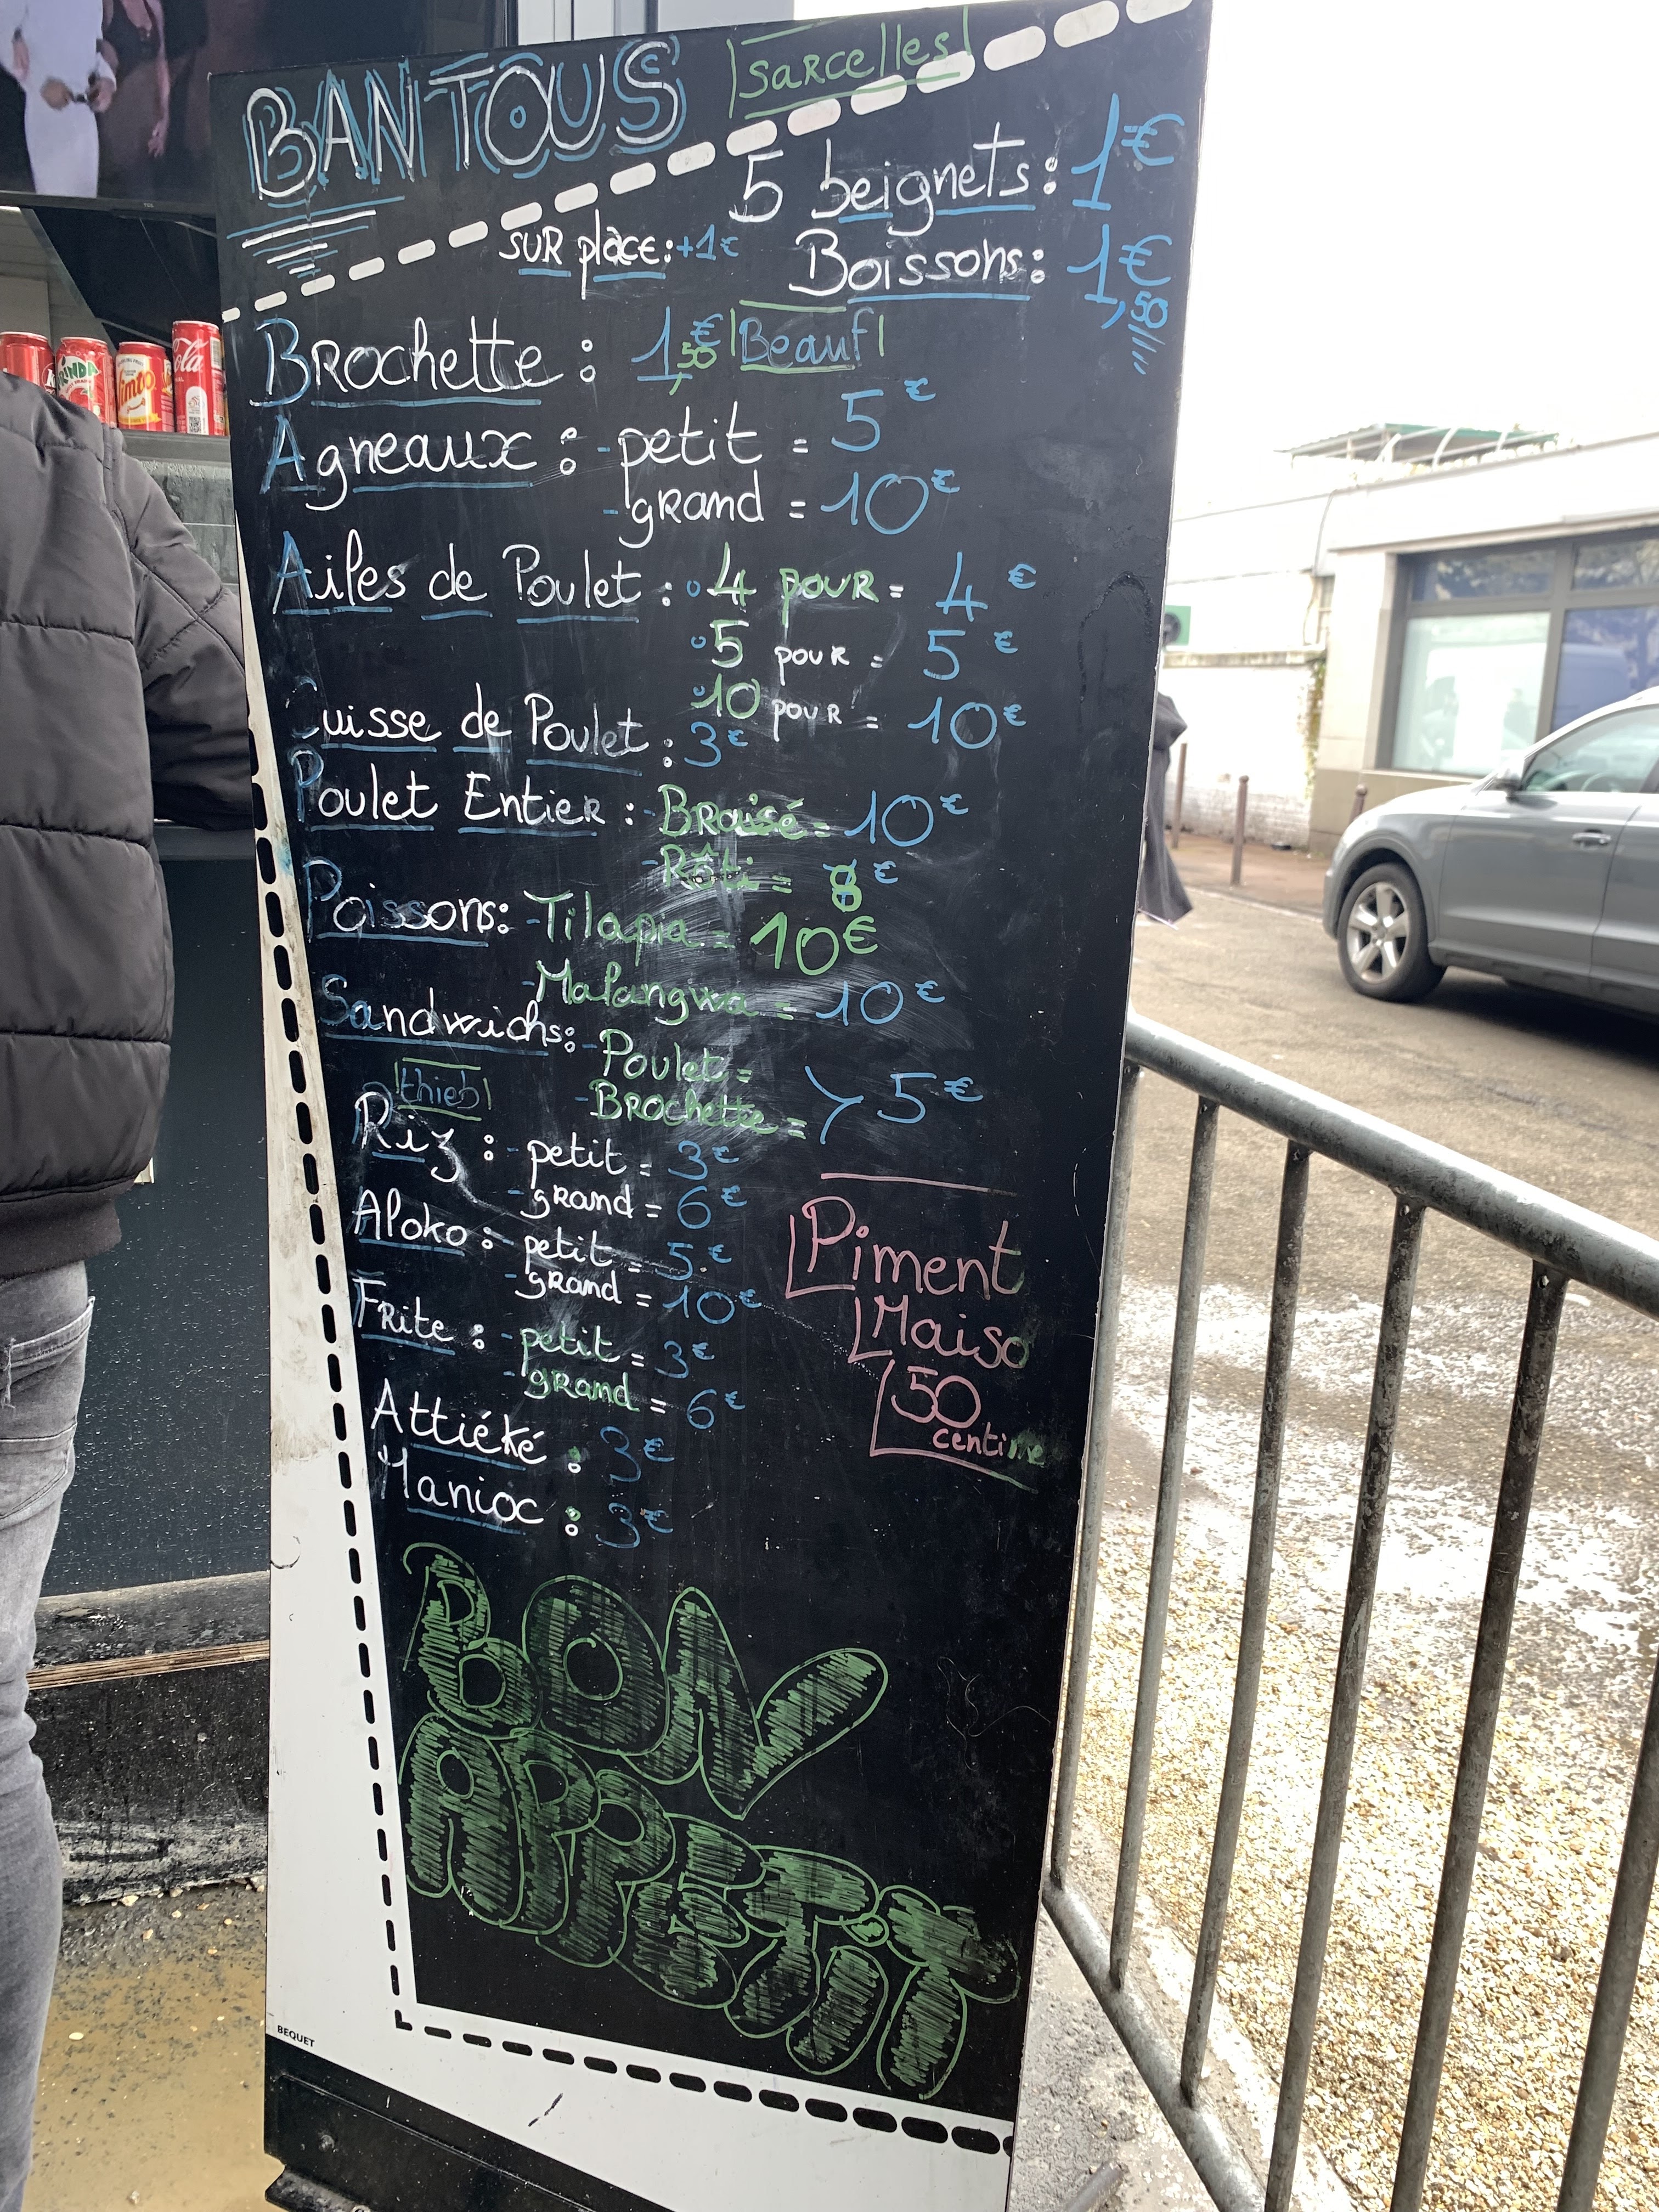 BANTOUS
Sarcelles
5 beignets: 1€
SUR place: +1€
Boissons: 1€,50
Brochette : 1,50€ Beauf
Agneaux : - petit = 5€
- grand = 10€
Ailes de Poulet : 4 pour = 4€
5 pour = 5€
10 pour = 10€
Cuisse de Poulet : 3€
Poulet Entier : - Braisé = 10€
- Rôti = 8€
Poissons: - Tilapia = 10€
- Malangwa = 10€
Sandwichs: - Poulet =
- Brochette = 5€
thieb
Riz : - petit = 3€
- grand = 6€
Aloko : - petit = 5€
- grand = 10€
Frite : - petit = 3€
- grand = 6€
Attiéké : 3€
Manioc : 3€
Piment
Maiso
50
centime
BON
APPETiT
BEQUET
Cola